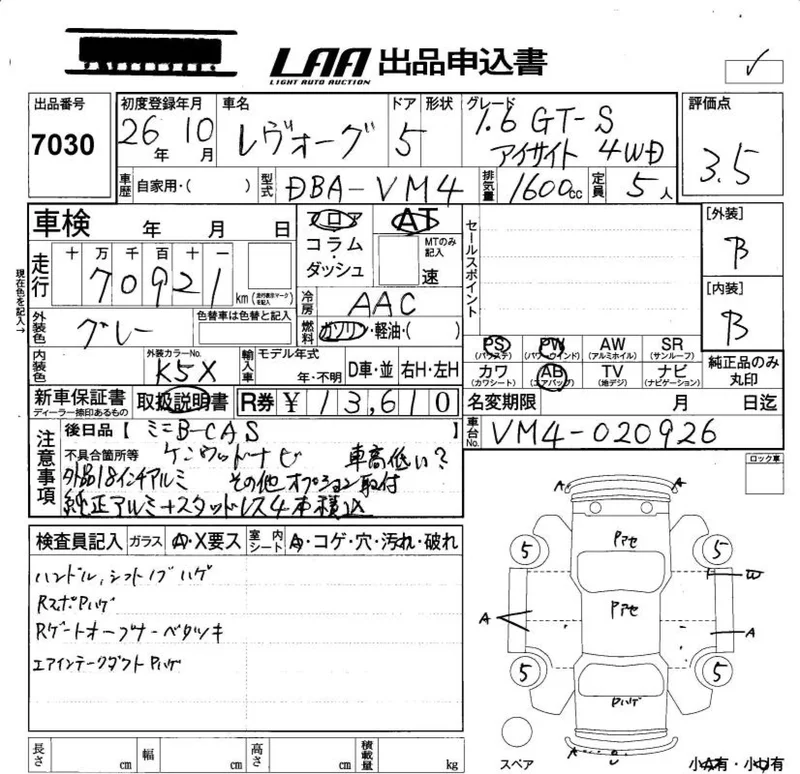 LAA 出品申込書
LIGHT AUTO AUCTION
出品番号
7030
初度登録年月
26年 10月
車名
レヴォーグ
ドア
5
形状
グレード
1.6 GT-S
アイサイト 4WD
評価点
3.5
車歴
自家用・( )
型式
DBA-VM4
排気量
1600cc
定員
5人
車検 年 月 日
走行
十 万 千 百 十 一
70921 km (走行表示マークを記入)
現在色を記入→
外装色
グレー
色替車は色替と記入
内装色
外装カラーNo.
K5X
フロア
コラム・ダッシュ
AT
MTのみ記入
速
冷房
AAC
燃料
ガソリン・軽油・( )
輸入車
モデル年式
年・不明
D車・並
右H・左H
セールスポイント
[外装]
B
[内装]
B
PS (パワステ)
PW (パワーウインド)
AW (アルミホイル)
SR (サンルーフ)
カワ (カワシート)
AB (エアバッグ)
TV (地デジ)
ナビ (ナビゲーション)
純正品のみ丸印
新車保証書
ディーラー捺印あるもの
取扱説明書
R券 ¥ 13,610
名変期限 月 日迄
車台No.
VM4-020926
注意事項
後日品【 ミニB-CAS 】
不具合箇所等
ケンウッドナビ 車高低い?
外品18インチアルミ その他オプション取付
純正アルミ+スタッドレス4本積込
ロック車
検査員記入
ガラス
A・X要ス
室内シート
A・コゲ・穴・汚れ・破れ
ハンドル,シフトノブハゲ
RスポPハゲ
Rゲートオープナーベタツキ
エアインテークダクトPハゲ
A A
Pアセ
5 5
W
Pアセ
A A
5 5
Pハゲ
A U
スペア
小A有・小U有
長さ cm
幅 cm
高さ cm
積載量 kg